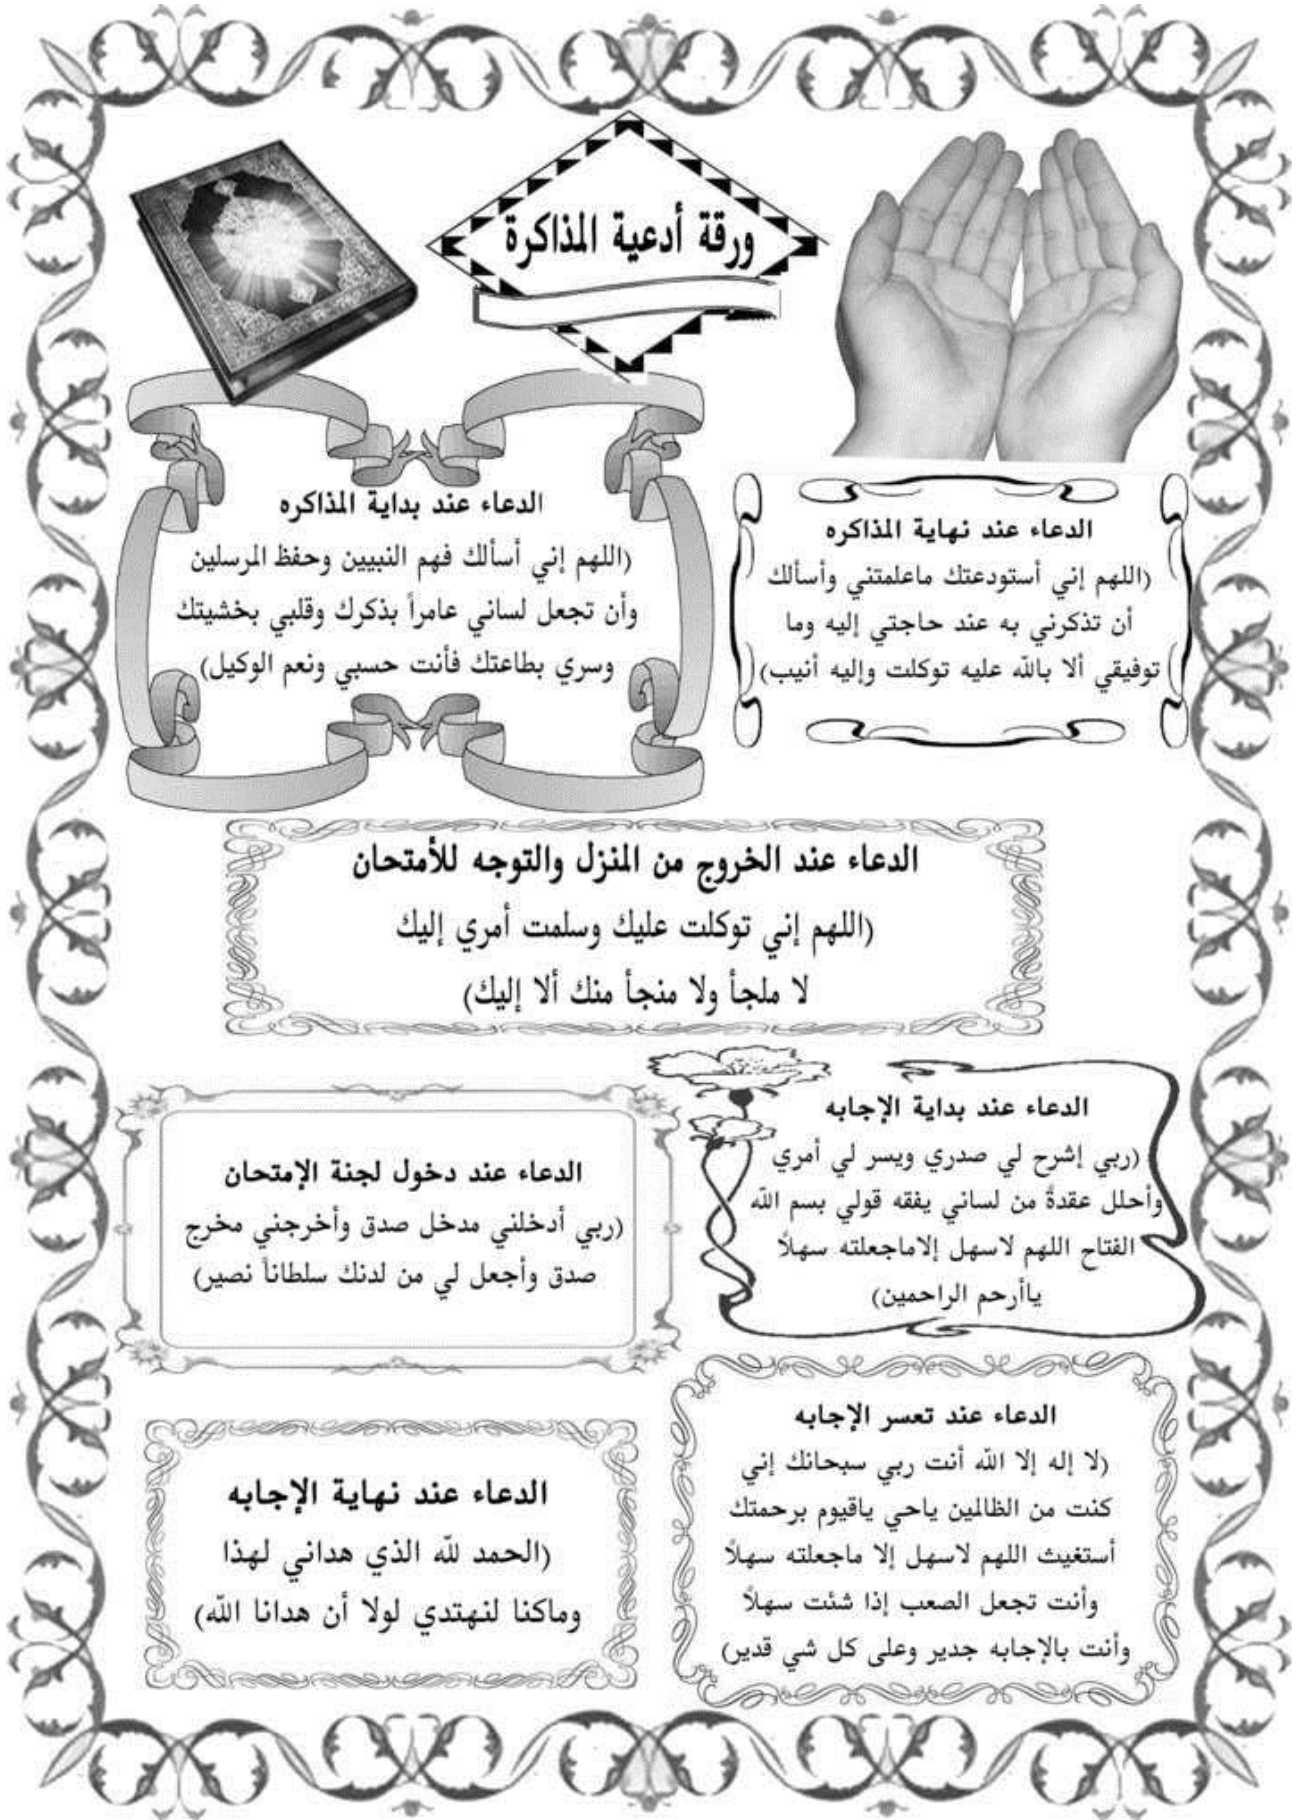 ورقة أدعية المذاكرة
الدعاء عند نهاية المذاكره
(اللهم إني أستودعتك ماعلمتني وأسألك
أن تذكرني به عند حاجتي إليه وما
توفيقي ألا بالله عليه توكلت وإليه أنيب)
الدعاء عند بداية المذاكره
(اللهم إني أسألك فهم النبيين وحفظ المرسلين
وأن تجعل لساني عامراً بذكرك وقلبي بخشيتك
وسري بطاعتك فأنت حسبي ونعم الوكيل)
الدعاء عند الخروج من المنزل والتوجه للأمتحان
(اللهم إني توكلت عليك وسلمت أمري إليك
لا ملجأ ولا منجأ منك ألا إليك)
الدعاء عند بداية الإجابه
(ربي إشرح لي صدري ويسر لي أمري
وأحلل عقدةً من لساني يفقه قولي بسم الله
الفتاح اللهم لاسهل إلاماجعلته سهلاً
ياأرحم الراحمين)
الدعاء عند دخول لجنة الإمتحان
(ربي أدخلني مدخل صدق وأخرجني مخرج
صدق وأجعل لي من لدنك سلطاناً نصير)
الدعاء عند تعسر الإجابه
(لا إله إلا الله أنت ربي سبحانك إني
كنت من الظالمين ياحي ياقيوم برحمتك
أستغيث اللهم لاسهل إلا ماجعلته سهلاً
وأنت تجعل الصعب إذا شئت سهلاً
وأنت بالإجابه جدير وعلى كل شي قدير)
الدعاء عند نهاية الإجابه
(الحمد لله الذي هداني لهذا
وماكنا لنهتدي لولا أن هدانا الله)